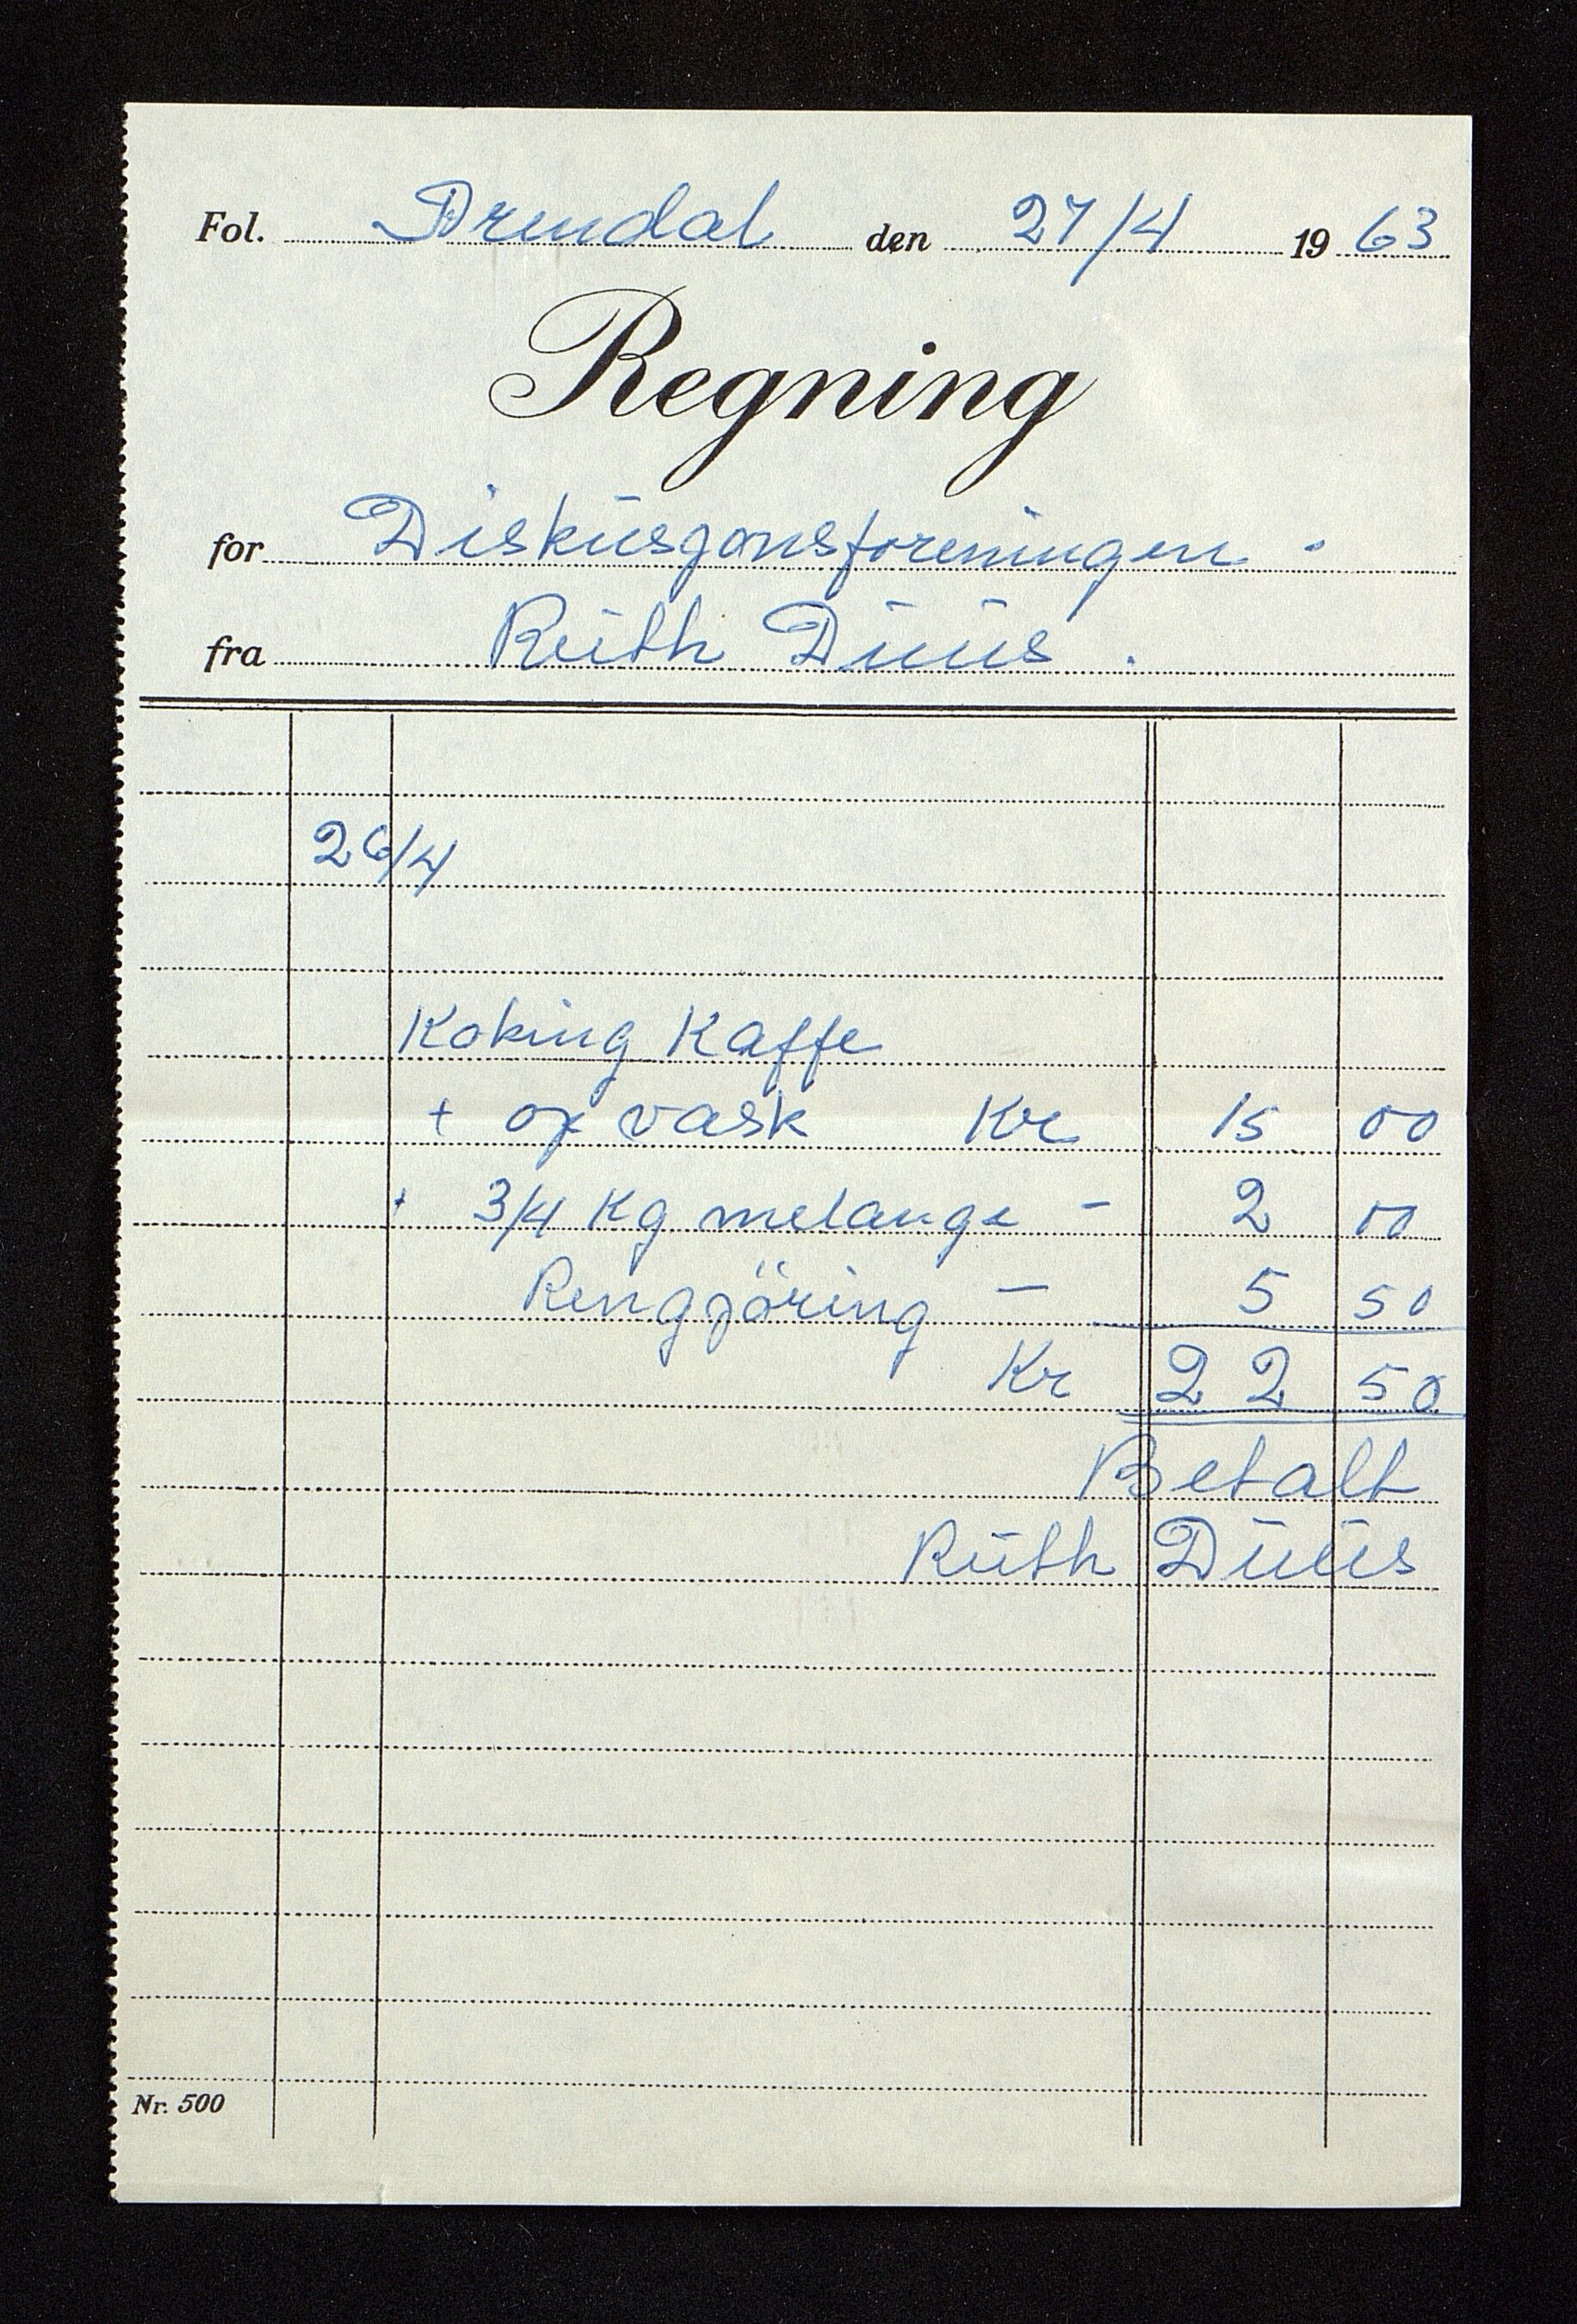 Fol. Arendal den 27/4 1963
Regning
for Diskusjonsforeningen.
fra Ruth Duus.
26/4
Koking Kaffe
+ opvask Kr 15 00
+ 3/4 Kg melange - 2 00
Rengjöring - 5 50
Kr 22 50
Betalt
Ruth Duus
Nr. 500